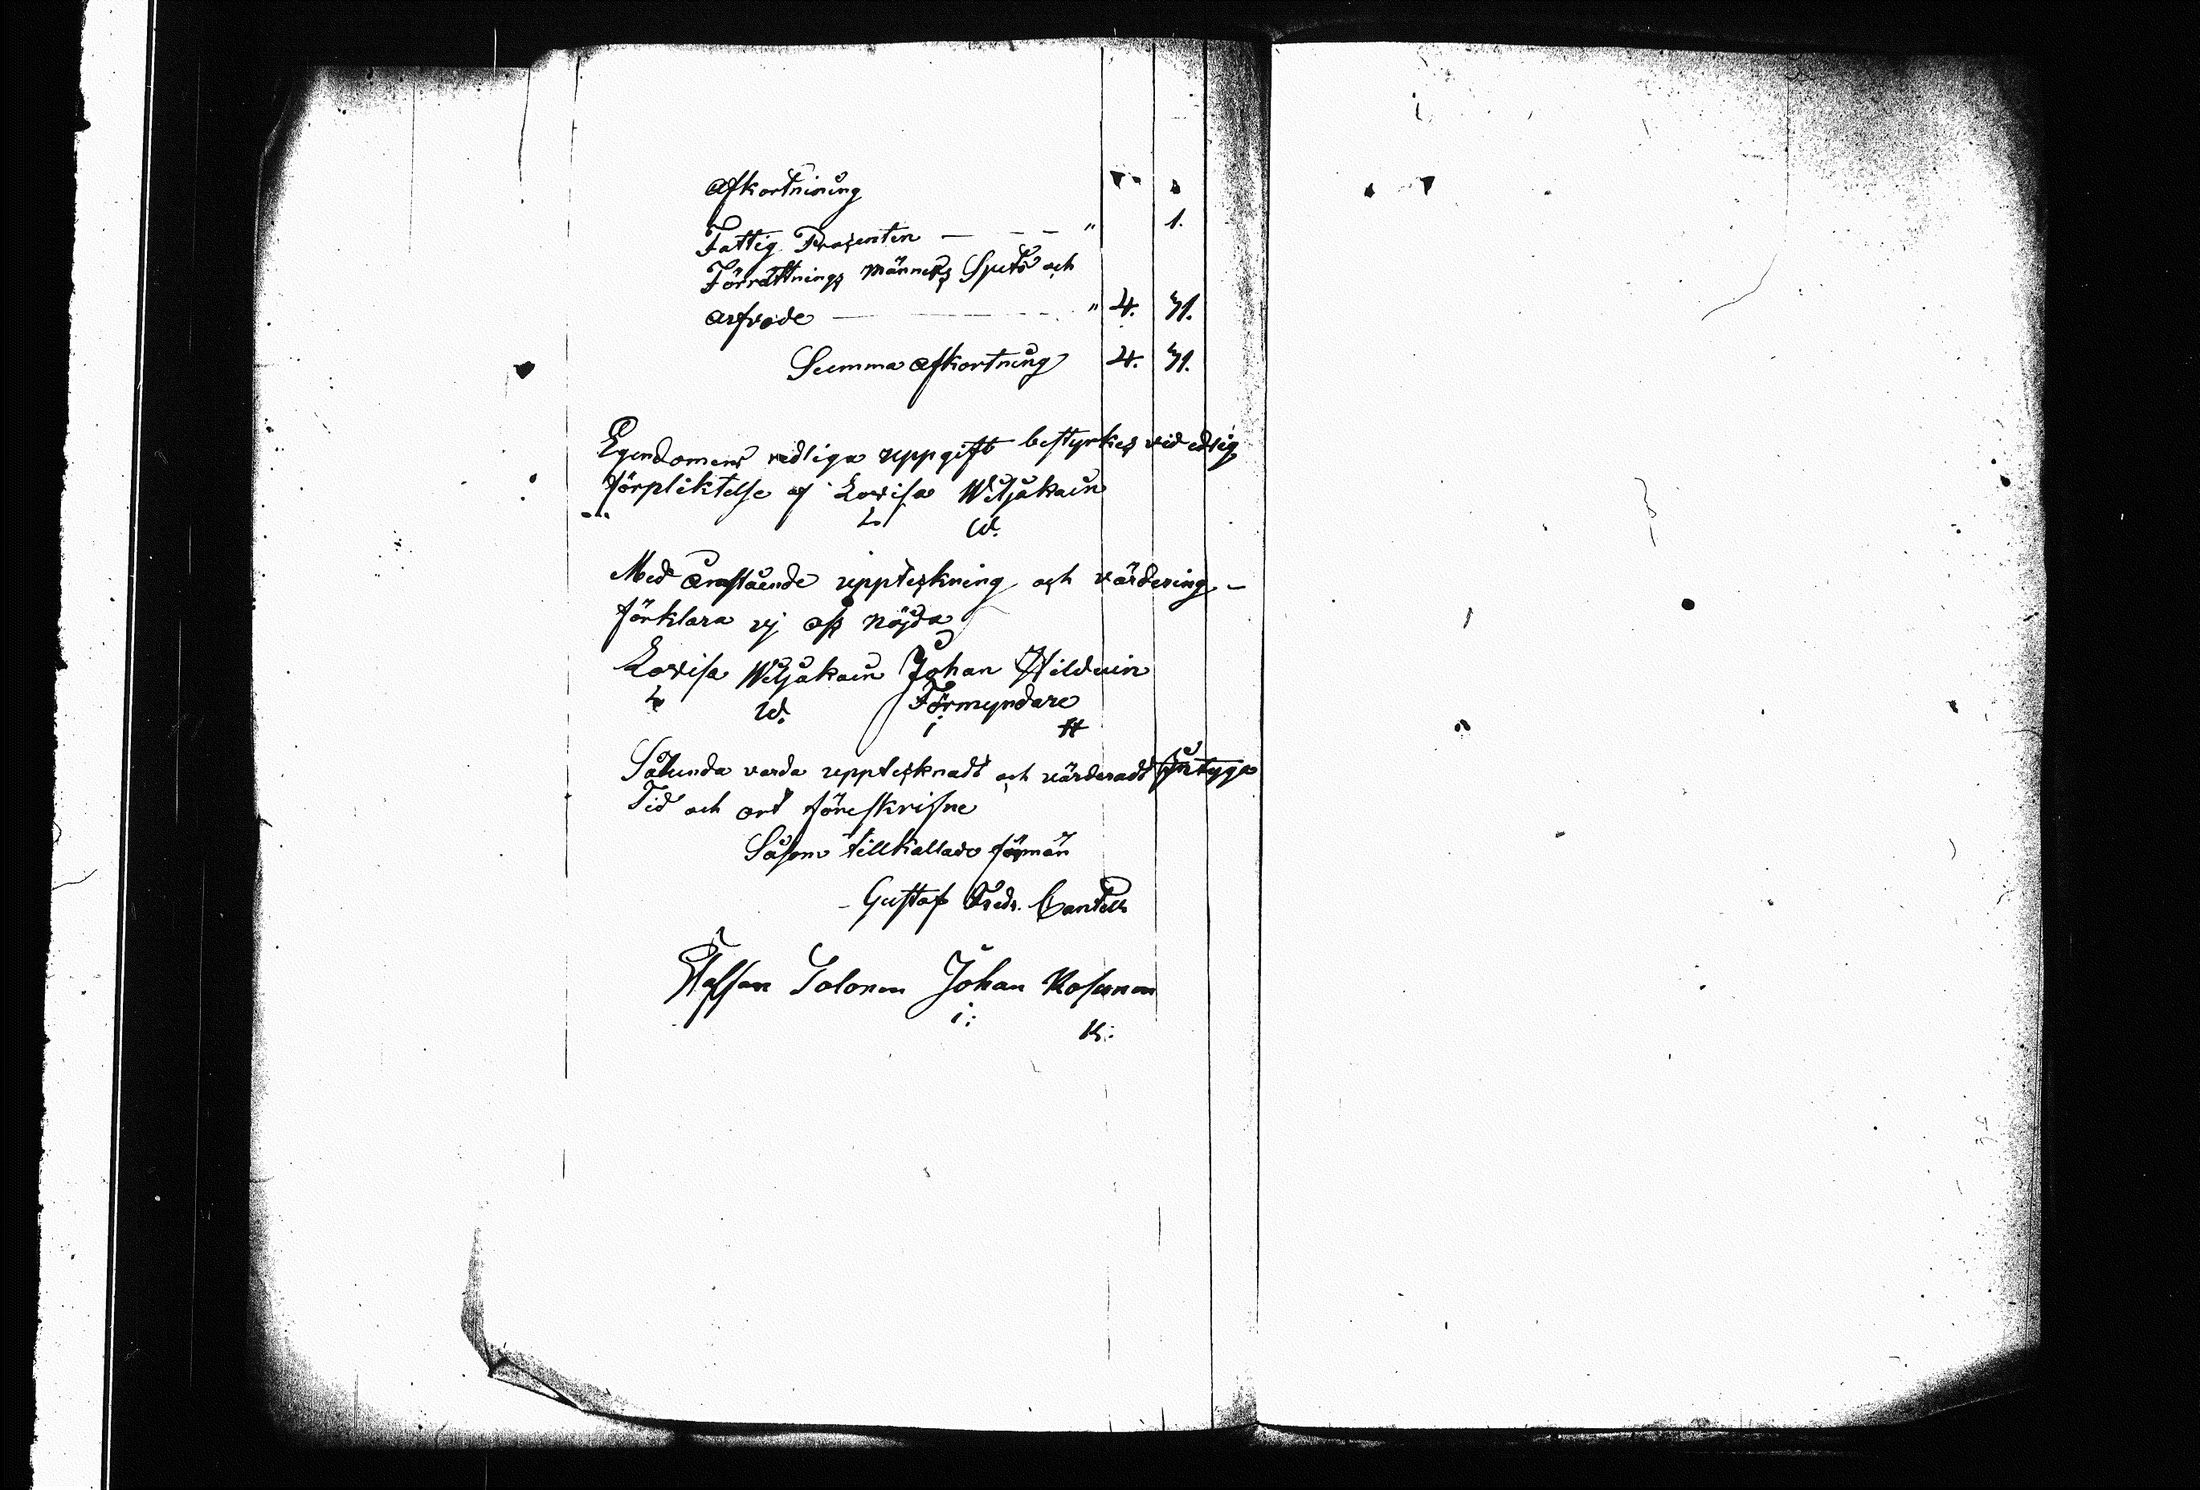 Afkortnining
Fattig Prosenten — — — " 1.
Förrättnings männens och
arfvode — — — " 4. 71.
Summa afkortning 4. 71.
Egendomens redliga uppgift bestyrkes vid edlig
förpliktelse af Lovisa Wiljakain
L W.
Med anstående uppteckning och värdering –
förklara vj oss nöjda
Lovisa Wiljakain Johan Hilduin
L W. Förmyndare
i H
Sålunda varda upptecknadt och värderadt intyga
Tid och ort föreskrifne
Såsom tillkallade
– Gustaf Fredr. Cantell
Staffan Solonen Johan Kosunen
i: K: